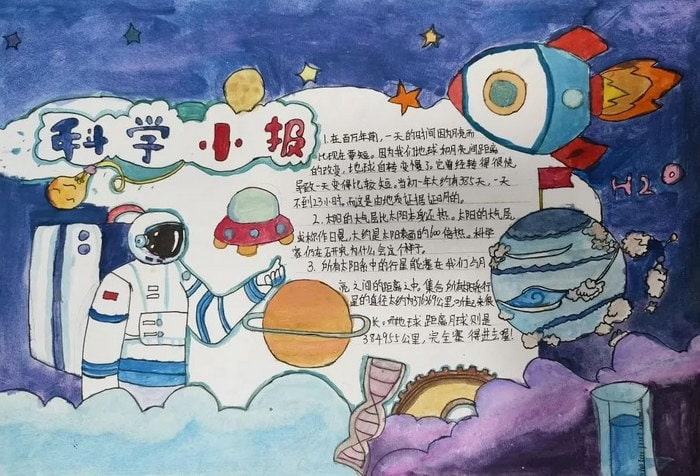 科学小报
1.在百万年前,一天的时间因为月亮而
比现在要短。因为我们地球和月亮间距离
的改变,地球自转变慢了。它曾经转得很快,
导致一天变得比较短。当初一年大约有385天,一天
不到23小时,而这是由地质证据证明的。
2.太阳的大气层比太阳本身还热。太阳的大气层,
被称作日冕,大约是太阳表面的600倍热。科学
家仍在研究为什么会这个样子。
3.所有太阳系中的行星能塞在我们与月
亮之间的距离之中,集合所有太阳系行
星的直径大约为
长。而地球距离月球则是
384955公里,完全塞得进去喔!
H2O